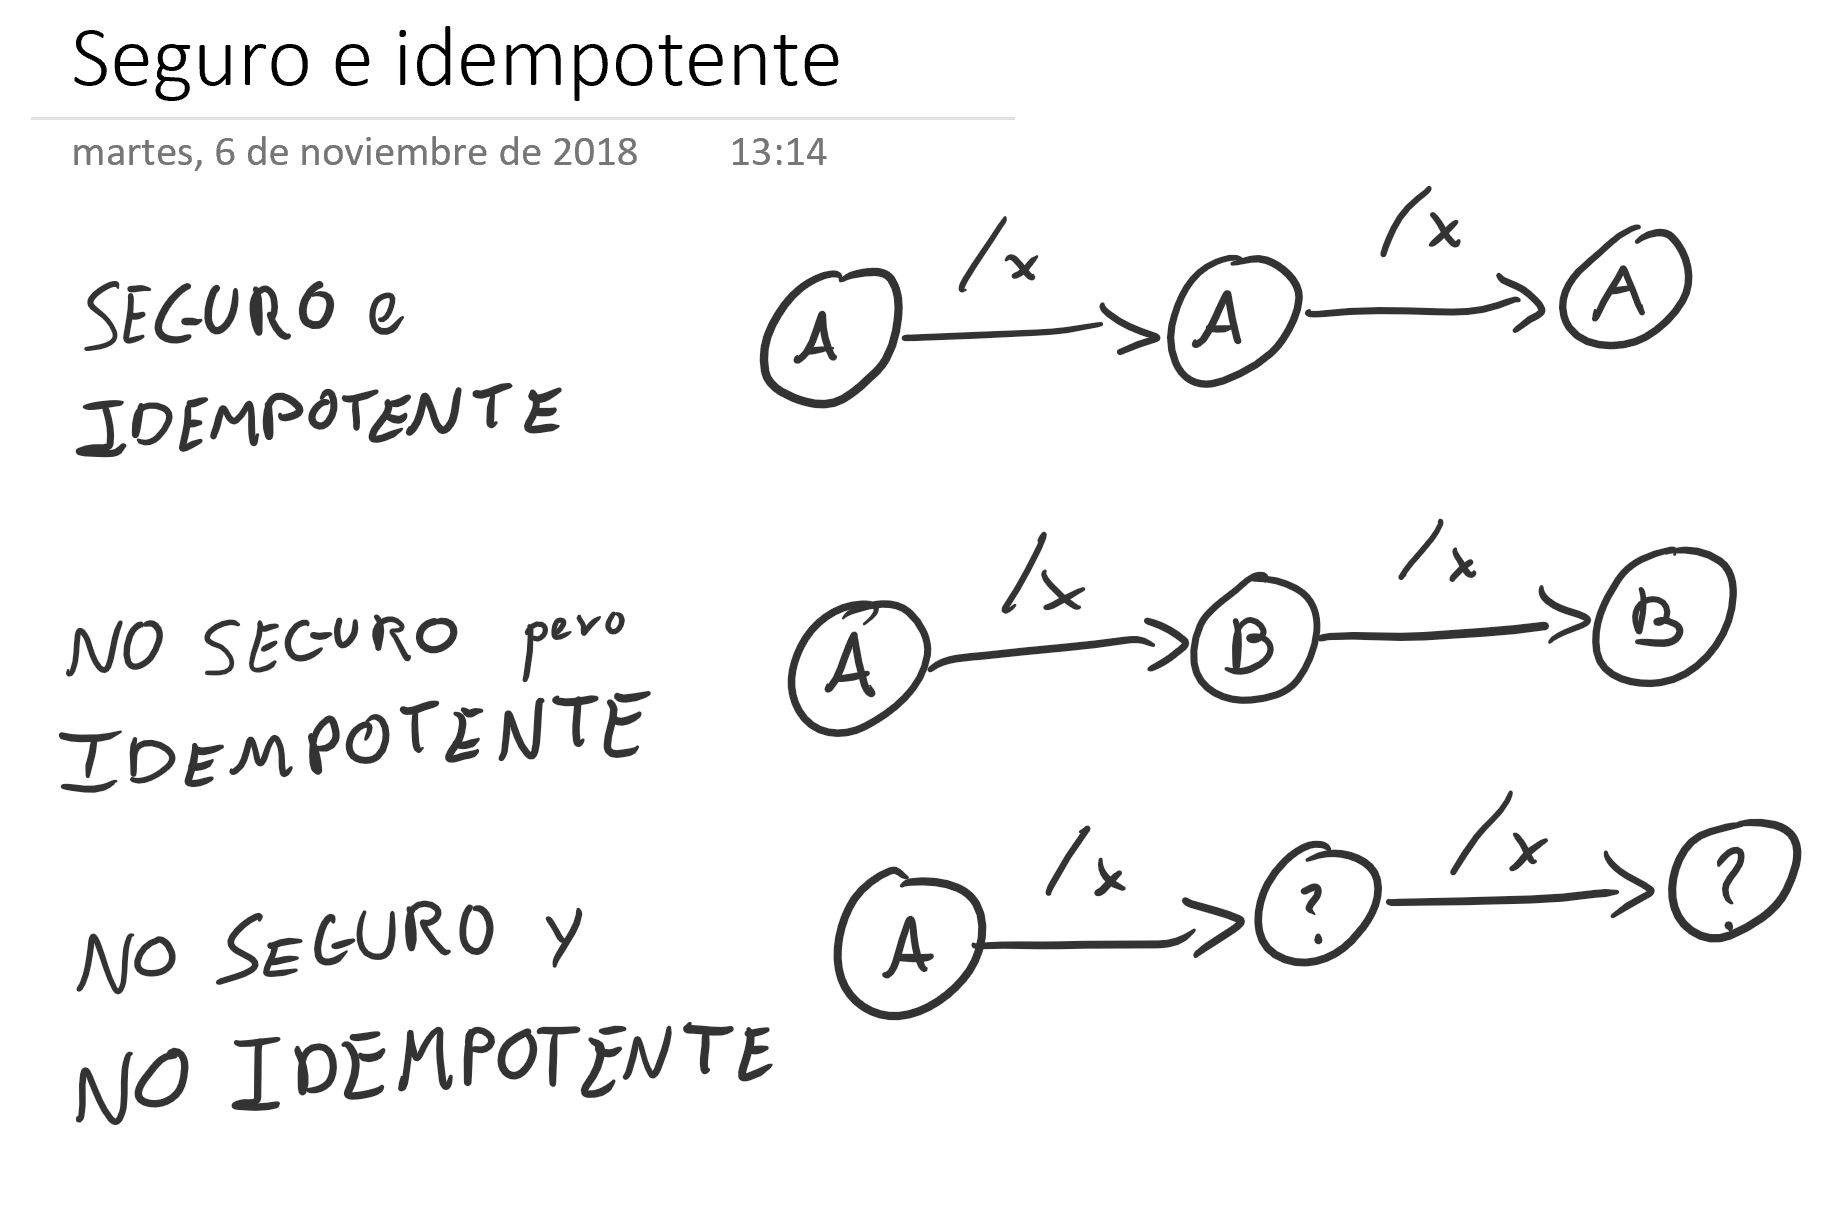 Seguro e idempotente
martes, 6 de noviembre de 2018 13:14
SEGURO e
IDEMPOTENTE
/x /x
A A A
NO SEGURO pero
IDEMPOTENTE
/x /x
A B B
NO SEGURO y
NO IDEMPOTENTE
/x /x
A ? ?